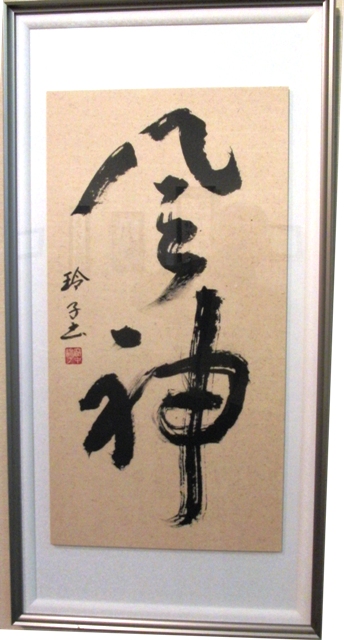 風神
玲子書